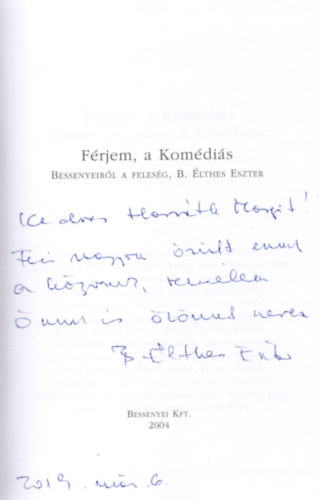 Férjem, a Komédiás
BESSENYEIRŐL A FELESÉG, B. ÉLTHES ESZTER
Kedves Horváth Margit!
Feri nagyon örült ennek
a könyvnek, remélem
Önnek is örömet szerez
B. Élthes Eszter
BESSENYEI KFT.
2004
2019. már. 6.